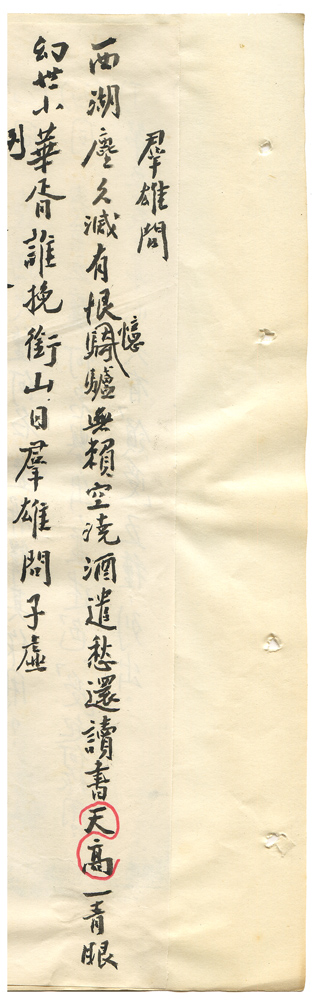 羣雄問
西湖塵久滅有恨憶騎驢無賴空澆酒遣愁還讀書天高一青眼
幻世小華胥誰挽銜山日羣雄問子虛